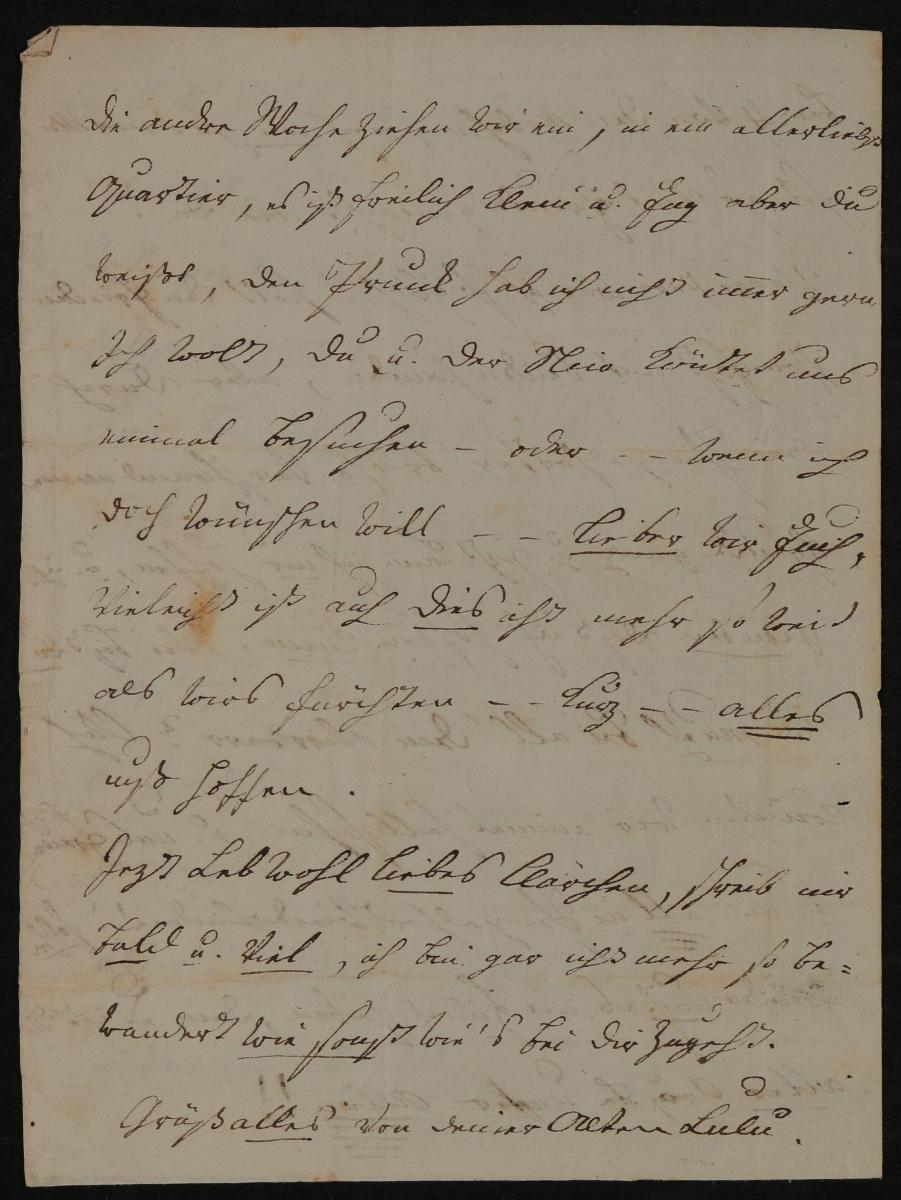 die andre Woche ziehen wir ein, in ein allerliebst
Quartier, es ist freilich klein u. Eng aber du
weißt, den Prunk hab ich nicht immer gern
Ich wolt, du u. der könntet uns
einmal besuchen – oder – – wenn ich
doch wünschen will – – lieber wir Euch,
Vieleicht ist auch dies nicht mehr so weit
als wirs fürchten – – kurz – – alles
muß hoffen.
Jezt Leb wohl liebes Clärchen, schreib mir
bald u. viel, ich bin gar nicht mehr so be=
wandert wie sonst wie's bei dir zugeht.
Grüß alles von deiner Alten Lulu.